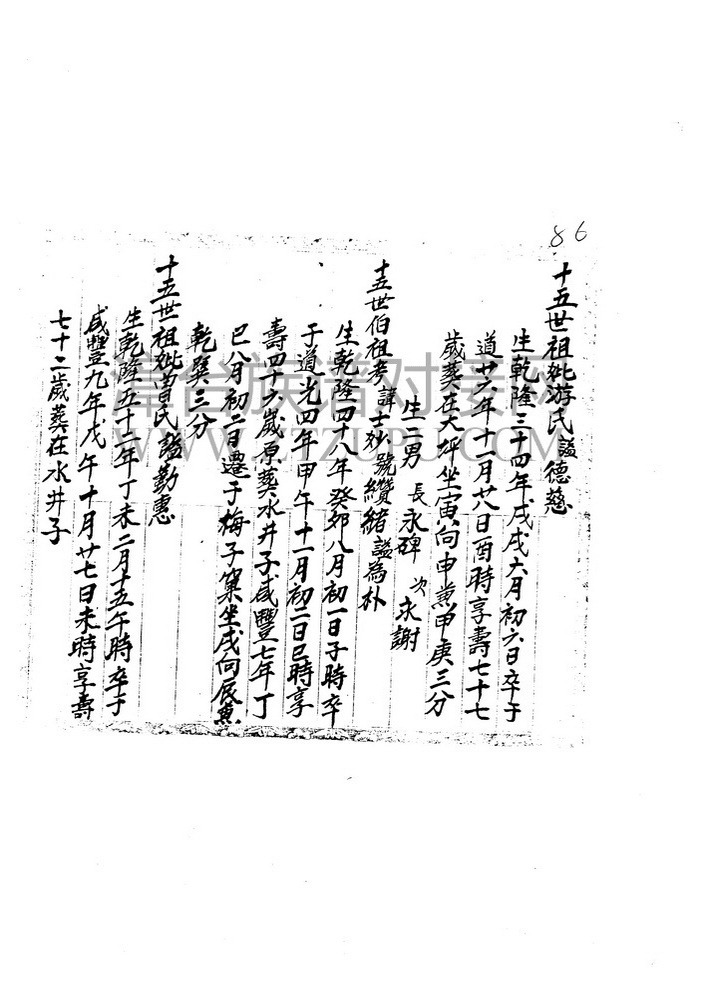 86
十五世祖妣游氏謚德慈
生乾隆三十四年戊戌六月初六日卒于
道光廿六年十一月廿八日酉時享壽七十七
歲葬在大坪坐寅向申兼甲庚三分
生二男 長永碑 次永謝
十五世伯祖考諱士妙號纘緒謚為朴
生乾隆四十八年癸卯八月初一日子時卒
于道光四年甲午十一月初二日巳時享
壽四十六歲原葬水井子咸豐七年丁
巳八月初二日遷于梅子窠坐戌向辰兼
乾巽三分
十五世祖妣曾氏謚勤惠
生乾隆五十二年丁未二月十五午時卒于
咸豐九年戊午十月廿七日未時享壽
七十二歲葬在水井子
台族谱对接网
WWW.ZZZUPU.COM